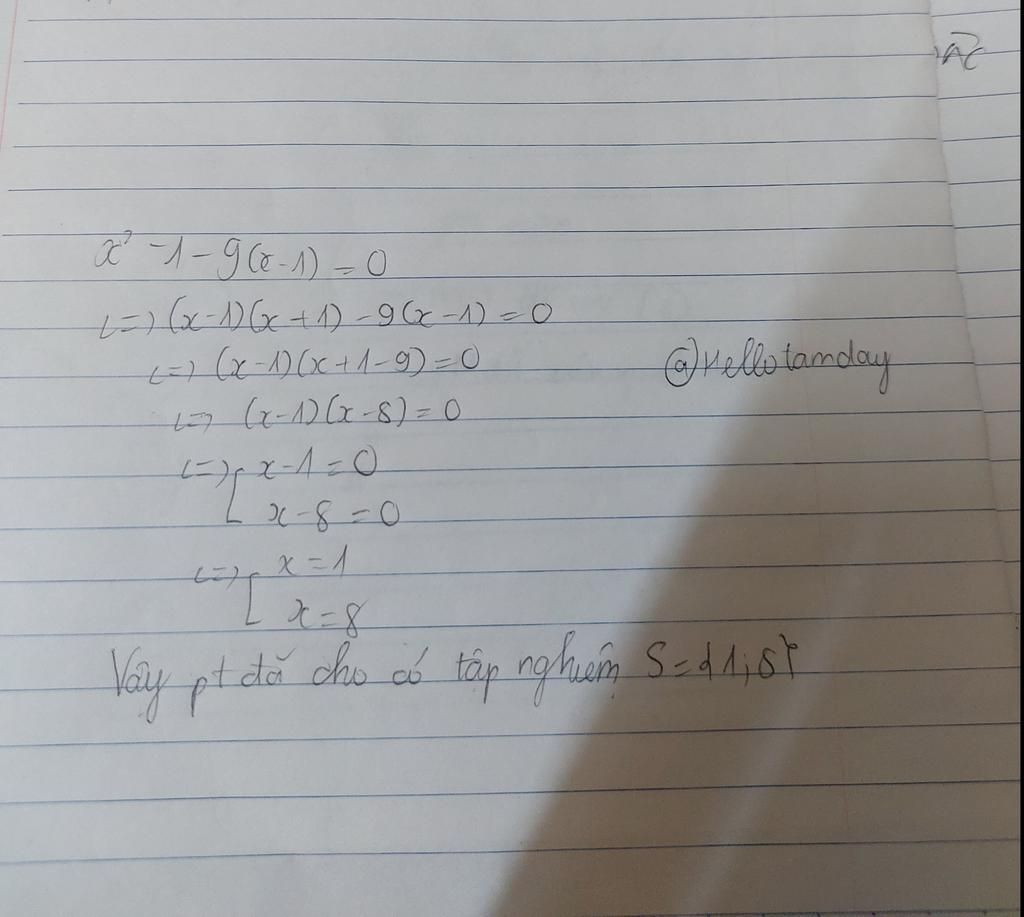 AC
x² - 1 - 9(x - 1) = 0
<=> (x - 1)(x + 1) - 9(x - 1) = 0
<=> (x - 1)(x + 1 - 9) = 0
@Hellotamday
<=> (x - 1)(x - 8) = 0
<=> [ x - 1 = 0
x - 8 = 0
<=> [ x = 1
x = 8
Vậy pt đã cho có tập nghiệm S = {1; 8}